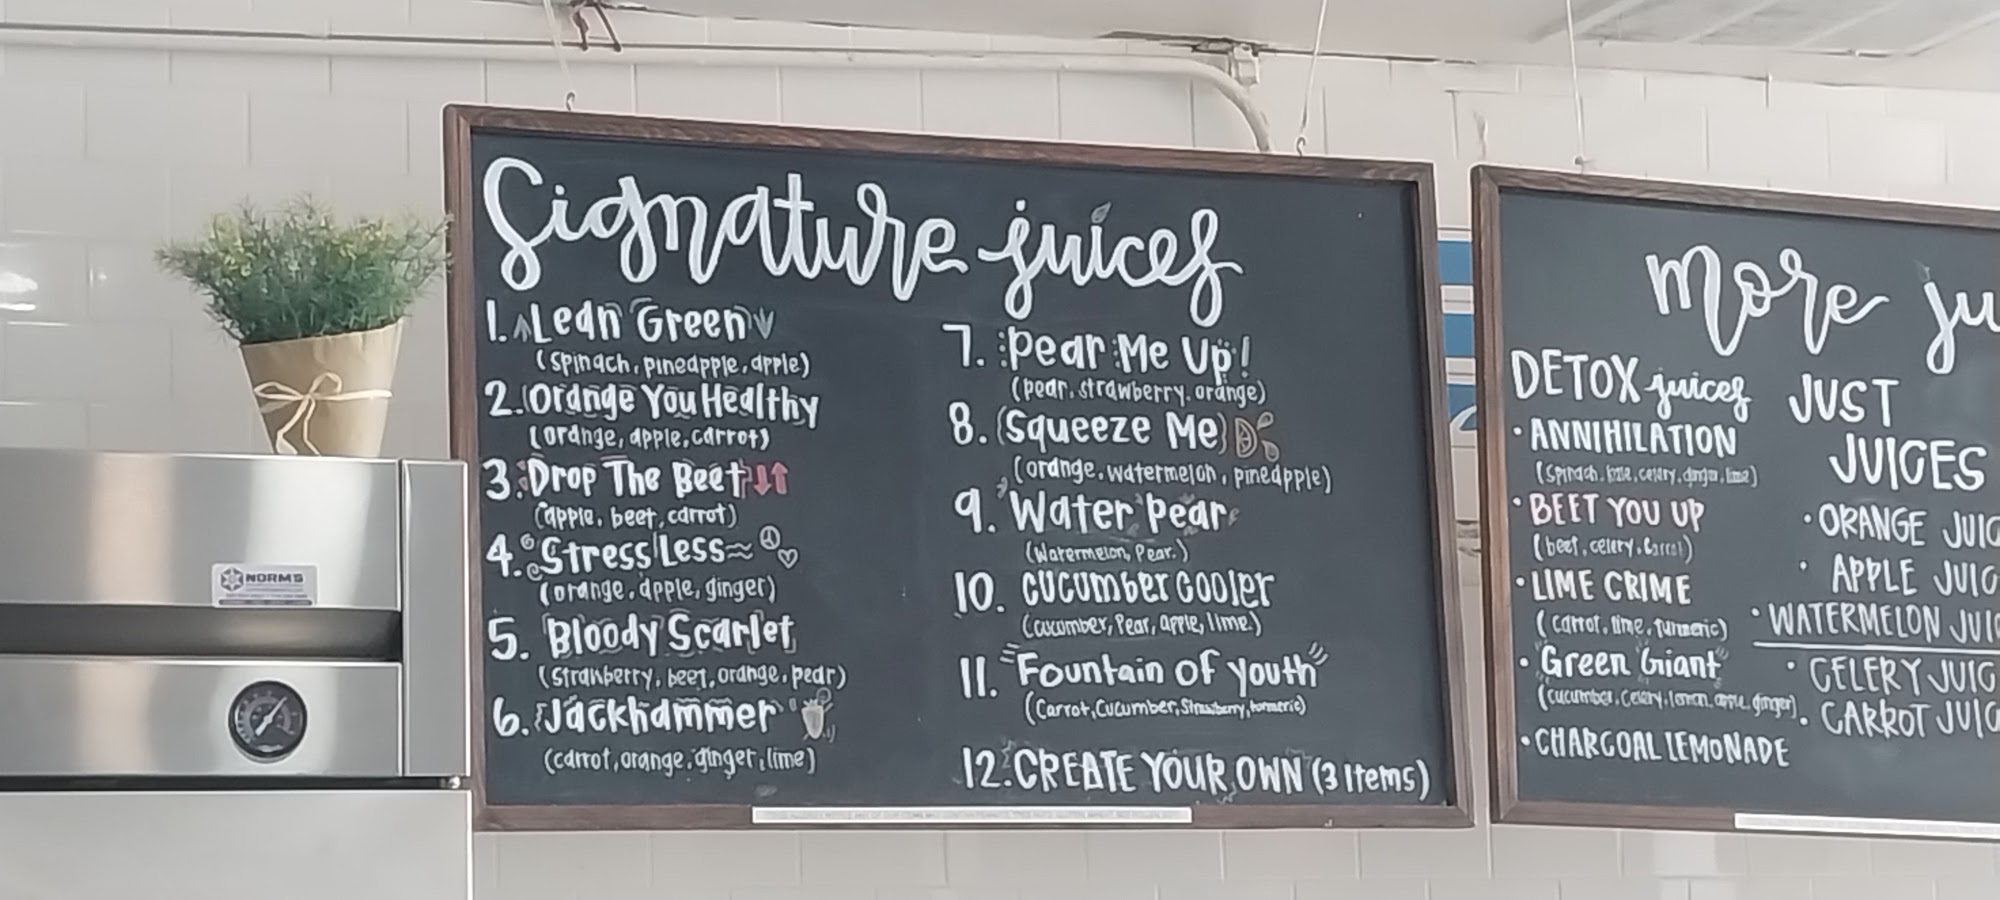 Signature juices
1. Lean Green
(spinach, pineapple, apple)
2. Orange You Healthy
(orange, apple, carrot)
3. Drop The Beet
(apple, beet, carrot)
4. Stress Less
(orange, apple, ginger)
5. Bloody Scarlet
(strawberry, beet, orange, pear)
6. Jackhammer
(carrot, orange, ginger, lime)
7. Pear Me Up!
(pear, strawberry, orange)
8. Squeeze Me
(orange, watermelon, pineapple)
9. Water Pear
(Watermelon, Pear.)
10. CUCUMBER COOLER
(cucumber, Pear, apple, lime.)
11. "Fountain OF youth"
(Carrot, Cucumber, Strawberry, turmeric)
12. CREATE YOUR OWN (3 Items)
More ju
DETOX juices
• ANNIHILATION
(Spinach, kale, celery, ginger, lime)
• BEET YOU UP
(beet, celery, Carrot)
• LIME CRIME
(carrot, lime, turmeric)
• "Green Giant"
(cucumber, Celery, lemon, apple, ginger)
• CHARCOAL LEMONADE
JUST
JUICES
• ORANGE JUIC
• APPLE JUIC
• WATERMELON JUIC
• CELERY JUIC
• CARROT JUIC
NORMS